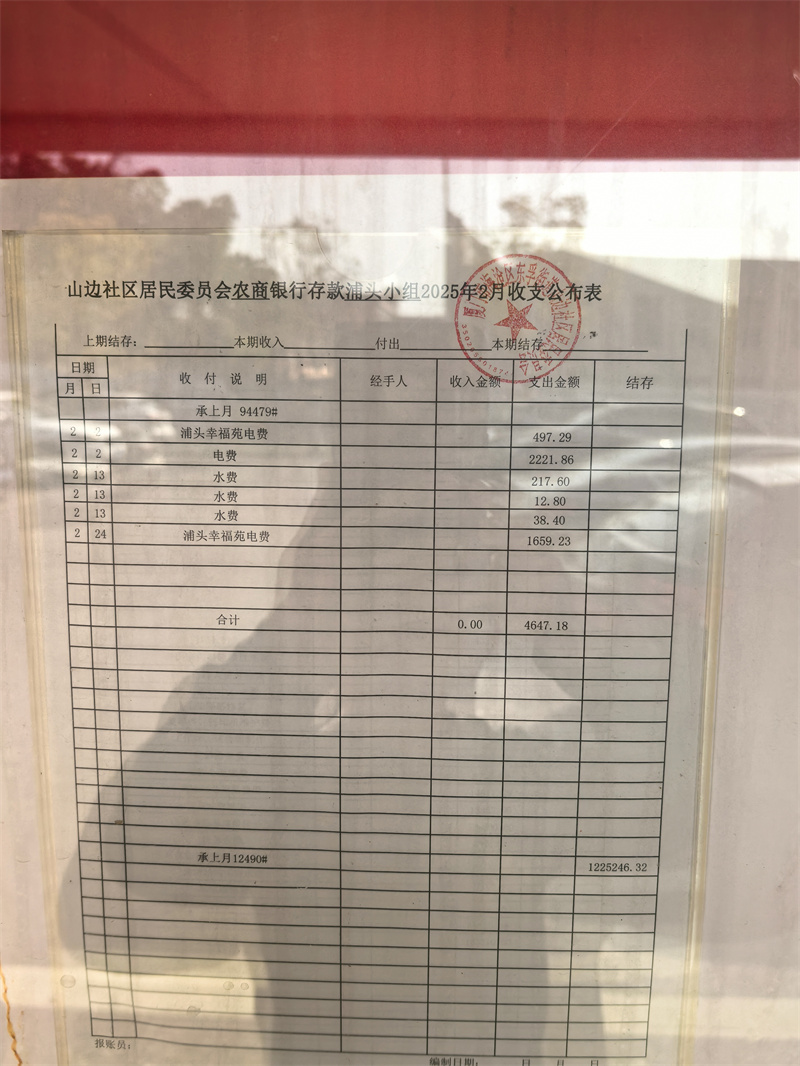 山边社区居民委员会农商银行存款浦头小组2025年2月收支公布表
上期结存： 本期收入 付出 本期结存
日期 收 付 说 明 经手人 收入金额 支出金额 结存
月 日
承上月 94479#
2 2 浦头幸福苑电费 497.29
2 2 电费 2221.86
2 13 水费 217.60
2 13 水费 12.80
2 13 水费 38.40
2 24 浦头幸福苑电费 1659.23
合计 0.00 4647.18
承上月12490# 1225246.32
报账员：
编制日期： 日 月 日